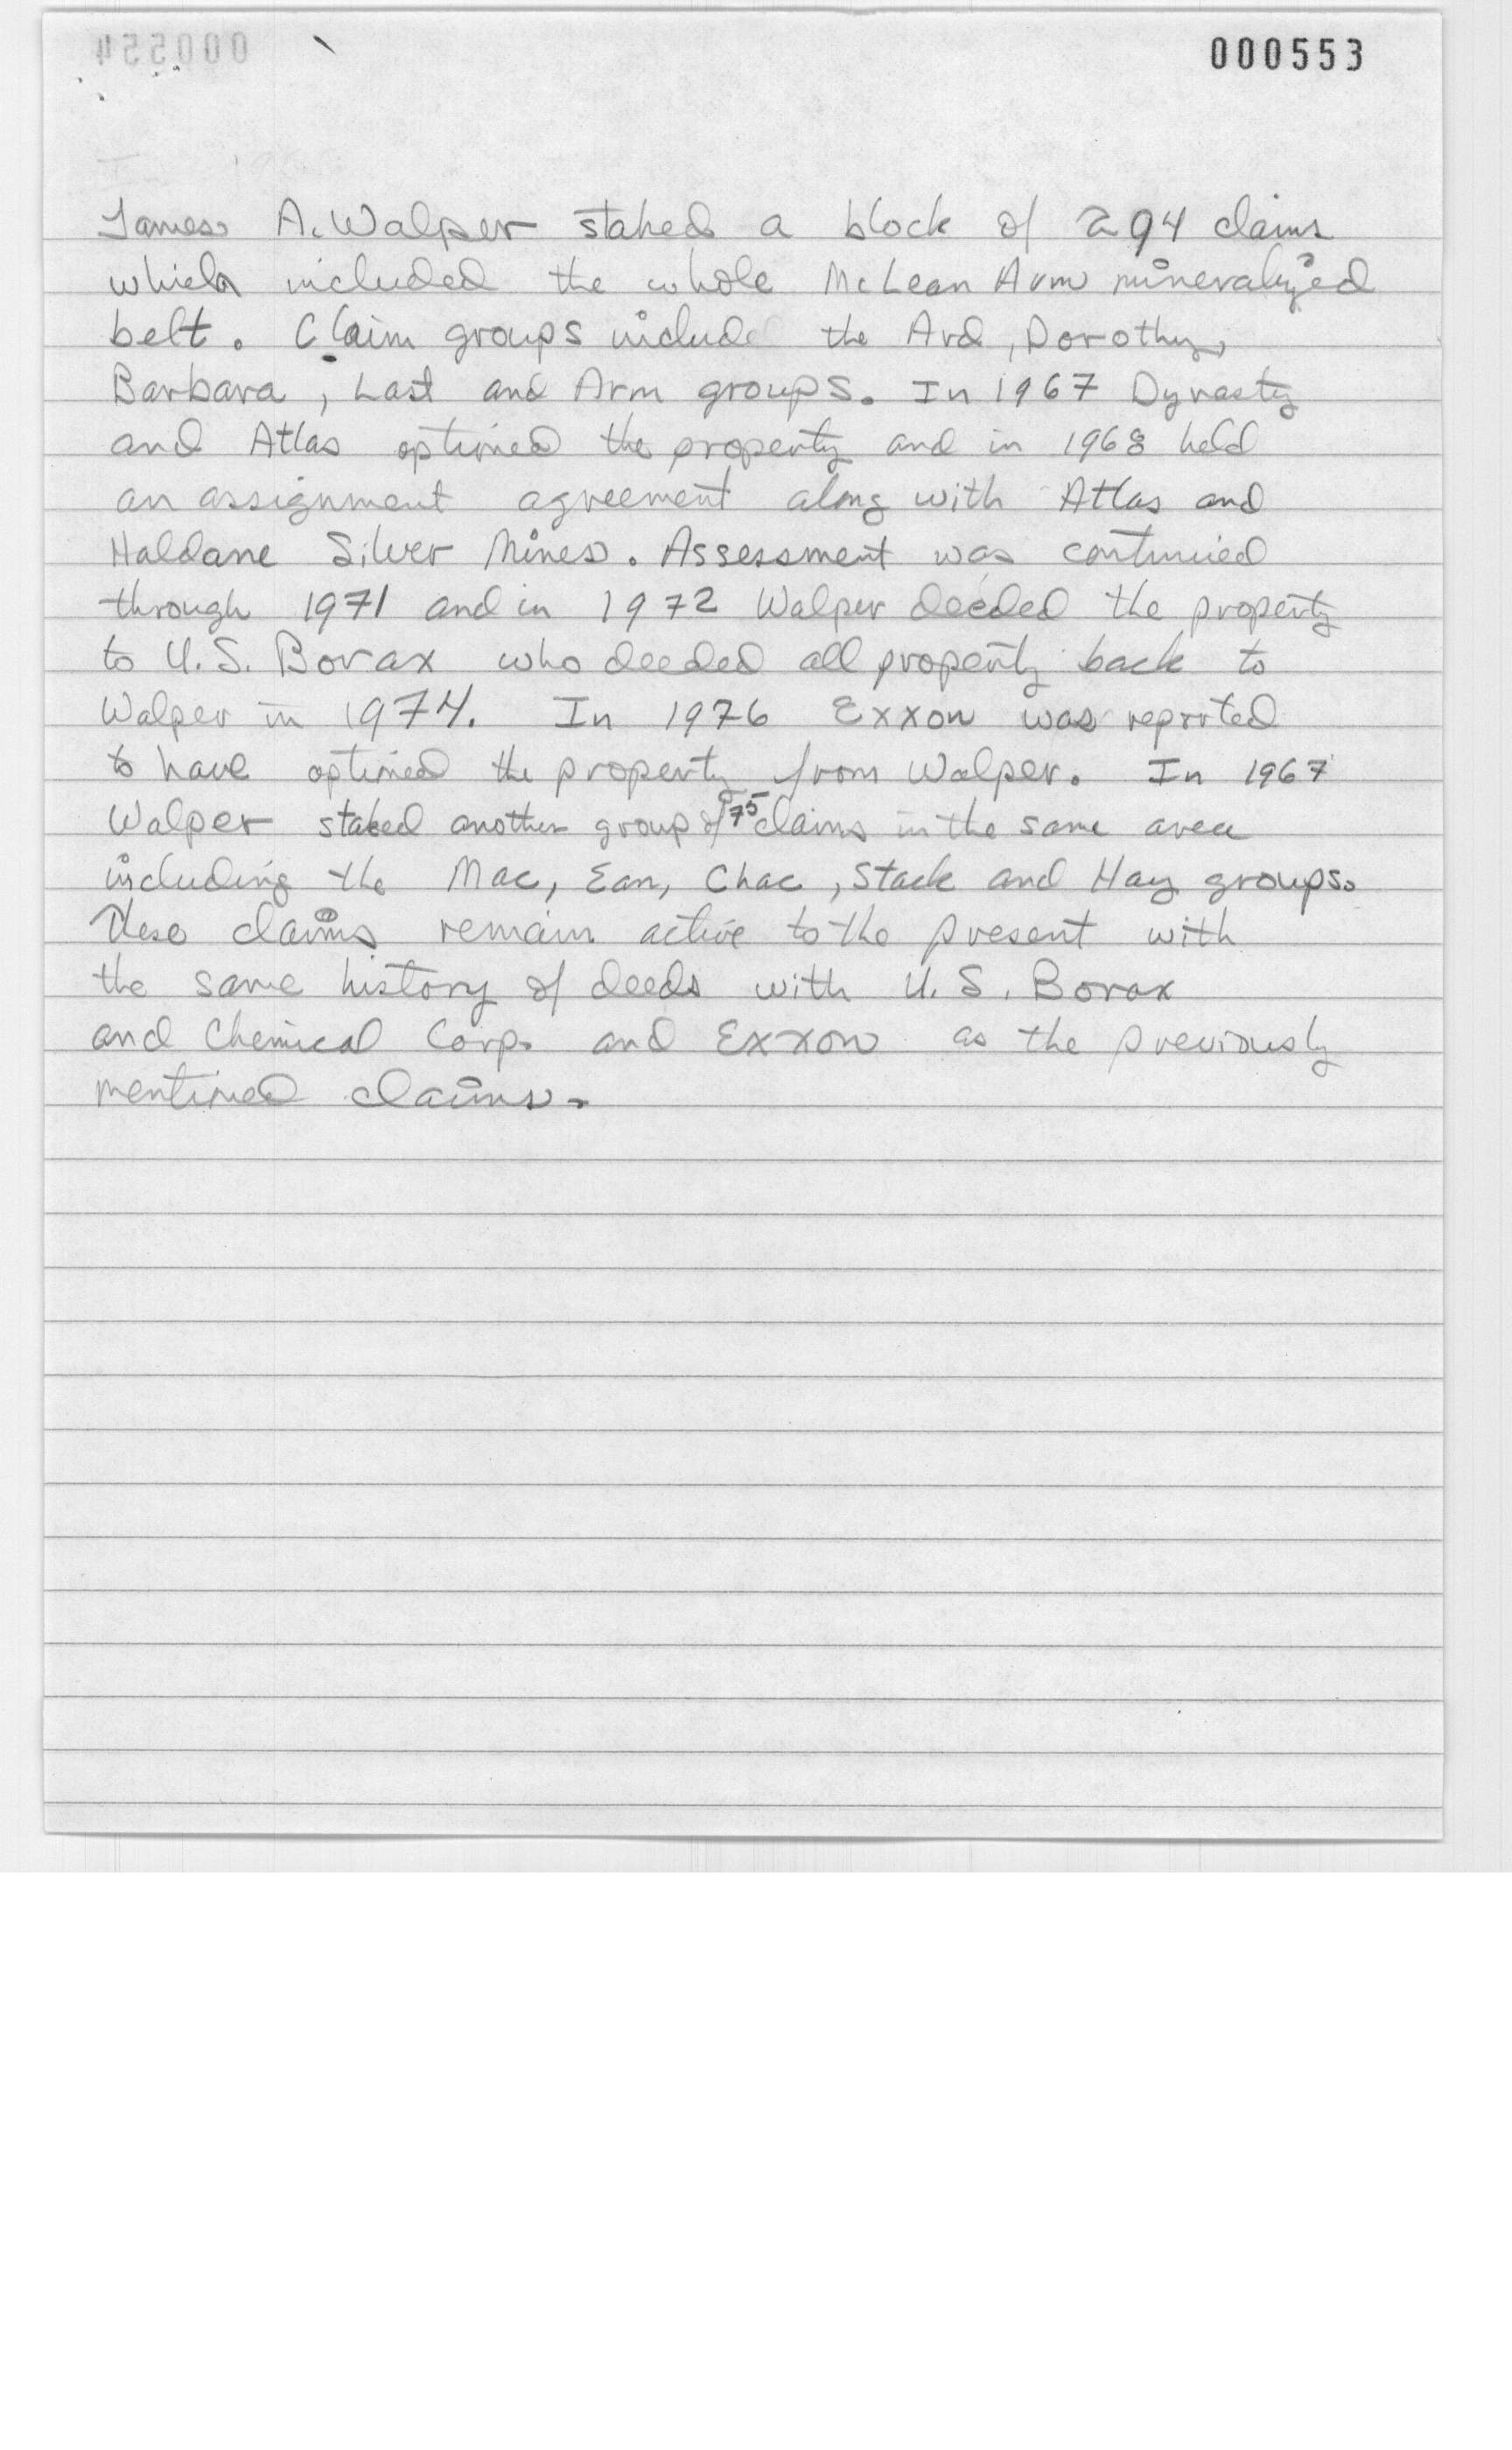 000553
James A. Walper staked a block of 294 claims
which included the whole McLean Arm mineralyzed
belt. Claim groups include the Ard, Dorothy,
Barbara, Last and Arm groups. In 1967 Dynasty
and Atlas optioned the property and in 1968 held
an assignment agreement along with Atlas and
Haldane Silver Mines. Assessment was continued
through 1971 and in 1972 Walper deeded the property
to U.S. Borax who deeded all property back to
Walper in 1974. In 1976 Exxon was reported
to have optioned the property from Walper. In 1967
Walper staked another group of 75 claims in the same area
including the Mac, Ean, Chac, Stack and Hay groups.
These claims remain active to the present with
the same history of deeds with U.S. Borax
and Chemical Corp. and Exxon as the previously
mentioned claims.